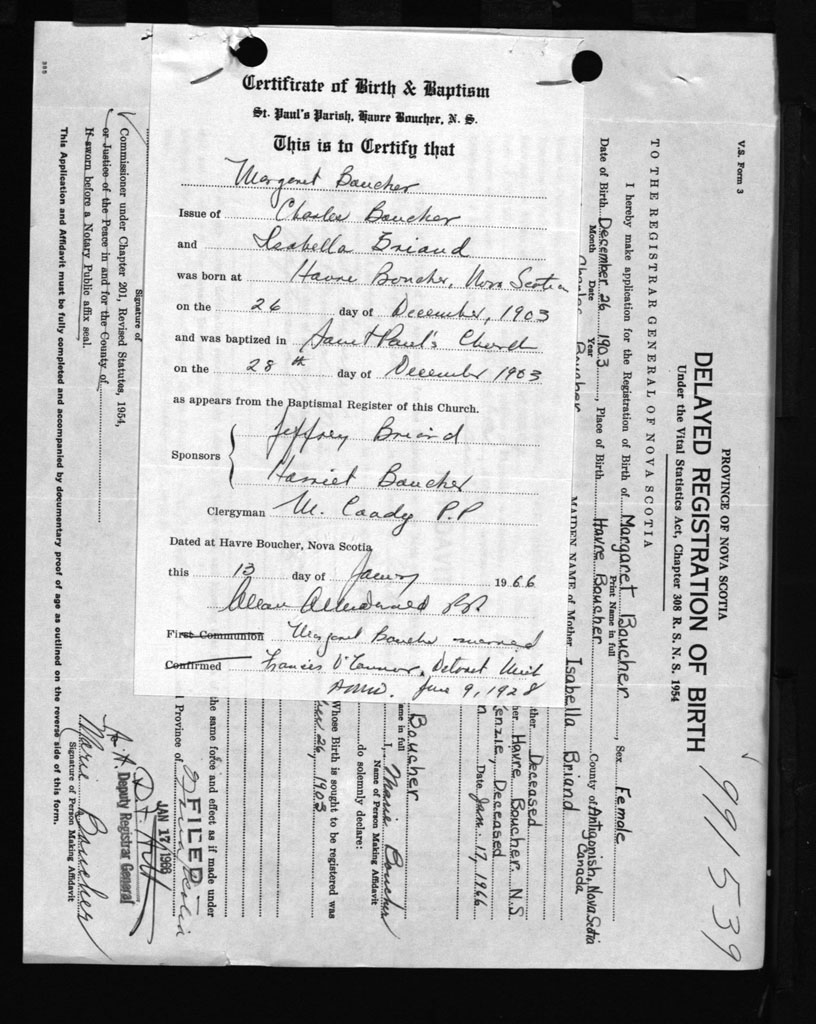 Certificate of Birth & Baptism
St. Paul's Parish, Havre Boucher, N. S.
This is to Certify that
Margaret Boucher
Issue of Charles Boucher
and Isabella Briand
was born at Havre Boucher, Nova Scotia
on the 26 day of December, 1903
and was baptized in Saint Paul's Church
on the 28th day of December 1903
as appears from the Baptismal Register of this Church.
Jeffrey Briand
Sponsors
Harriet Boucher
Clergyman M. Coady P.P
Dated at Havre Boucher, Nova Scotia
this 13 day of January 1966
First Communion Margaret Boucher married
Confirmed Francis O'Connor, Detroit Mich
June 9, 1928
V.S. Form 3
PROVINCE OF NOVA SCOTIA
DELAYED REGISTRATION OF BIRTH
Under the Vital Statistics Act, Chapter 308 R. S. N. S. 1954
991539
TO THE REGISTRAR GENERAL OF NOVA SCOTIA
I hereby make application for the Registration of Birth of Margaret Boucher, Sex Female
Print Name in full
Date of Birth December 26 1903, Place of Birth Havre Boucher County of Antigonish, Nova Scotia
Month Date Year
Canada
Charles Boucher
MAIDEN NAME of Mother Isabella Briand
ther Deceased
her Havre Boucher, N.S
enzie, Deceased
n Date Jan. 17, 1966
Boucher
ame in full
I, Marie Boucher
Name of Person Making Affidavit
do solemnly declare:
Whose Birth is sought to be registered was
ber 26, 1903
the same force and effect as if made under
Province of Nova Scotia
FILED
JAN 17 1966
Deputy Registrar General
Marie Boucher
Signature of Person Making Affidavit
Signature of
Commissioner under Chapter 201, Revised Statutes, 1954,
or Justice of the Peace in and for the County of
If sworn before a Notary Public affix seal.
This Application and Affidavit must be fully completed and accompanied by documentary proof of age as outlined on the reverse side of this form.